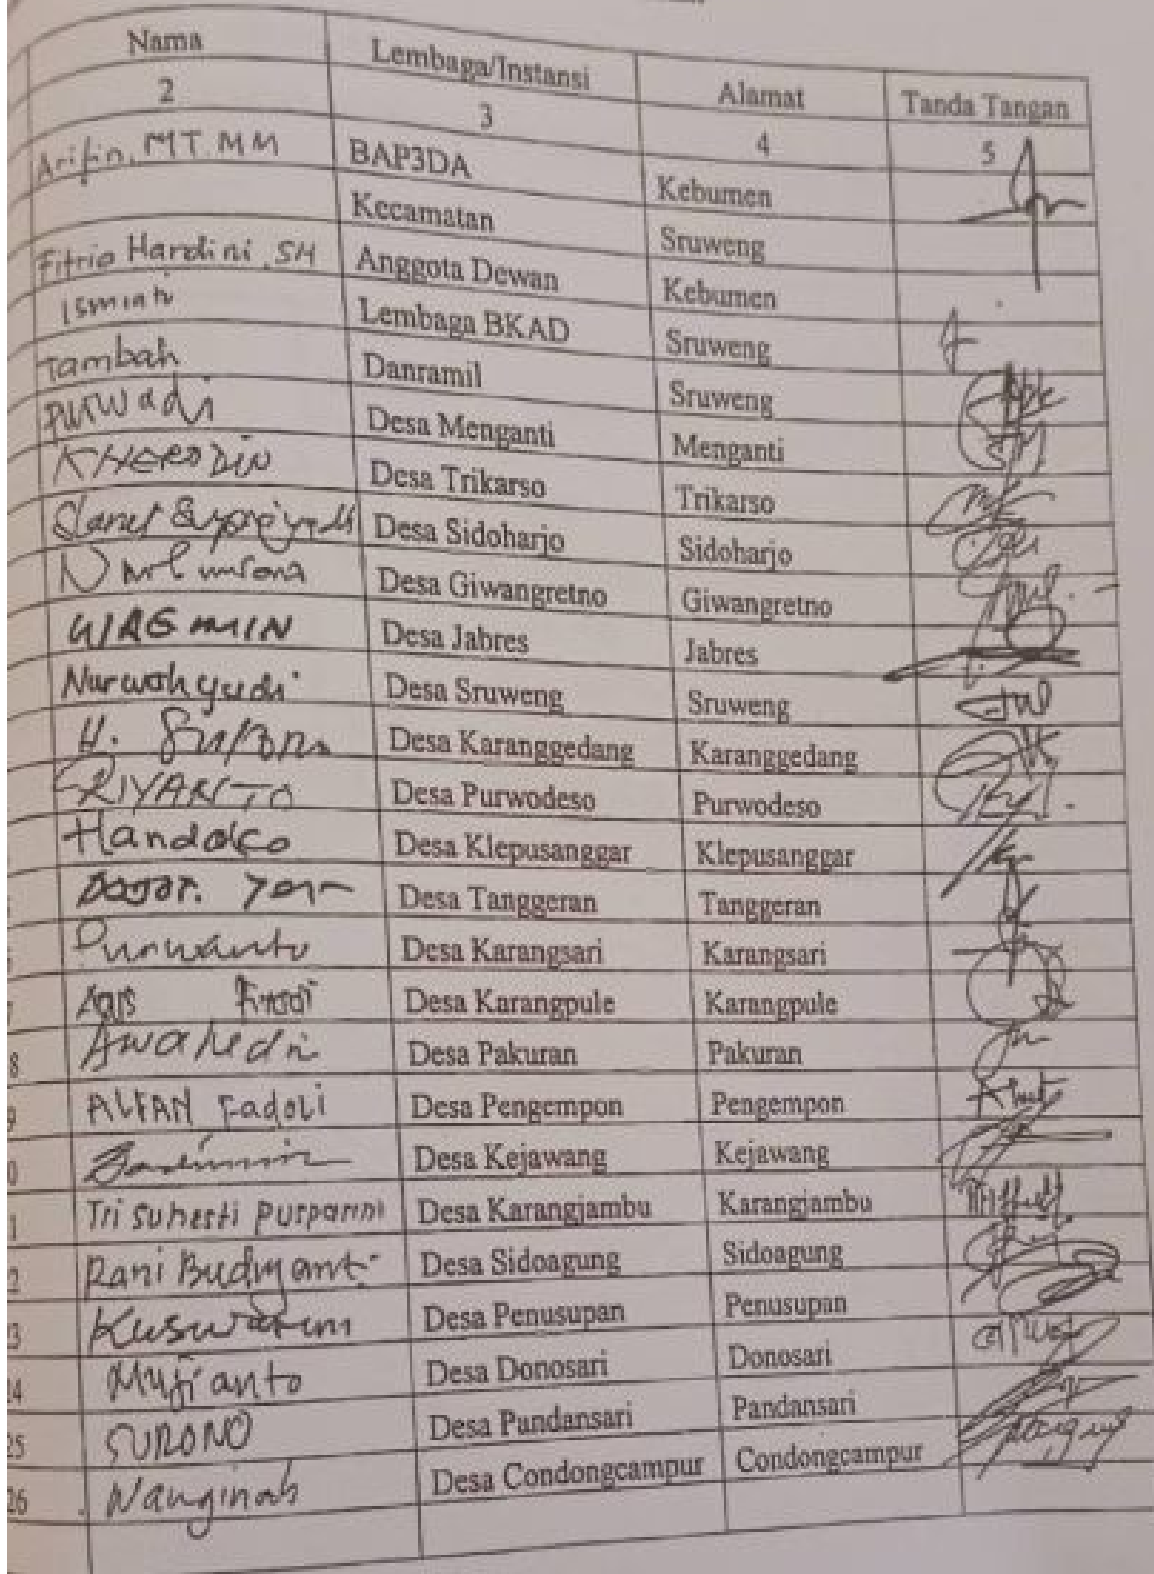 Nama Lembaga/Instansi Alamat Tanda Tangan
2 3 4 5
Arifin, MT MM BAP3DA Kebumen
Kecamatan Sruweng
Fitria Hardini, SH Anggota Dewan Kebumen
Ismiati Lembaga BKAD Sruweng
Tambah Danramil Sruweng
Purwadi Desa Menganti Menganti
KHERODIN Desa Trikarso Trikarso
Slamet Desa Sidoharjo Sidoharjo
Desa Giwangretno Giwangretno
WAGMIN Desa Jabres Jabres
Nurwahyudi Desa Sruweng Sruweng
H. Desa Karanggedang Karanggedang
RIYANTO Desa Purwodeso Purwodeso
Handoko Desa Klepusanggar Klepusanggar
Desa Tanggeran Tanggeran
Purwanto Desa Karangsari Karangsari
Desa Karangpule Karangpule
8 Desa Pakuran Pakuran
9 ALFAN Fadoli Desa Pengempon Pengempon
0 Desa Kejawang Kejawang
1 Tri Suhesti Puspanni Desa Karangjambu Karangjambu
2 Rani Budiyanti Desa Sidoagung Sidoagung
23 Desa Penusupan Penusupan
24 Mujianto Desa Donosari Donosari
25 SURONO Desa Pandansari Pandansari
26 Nanginah Desa Condongcampur Condongcampur